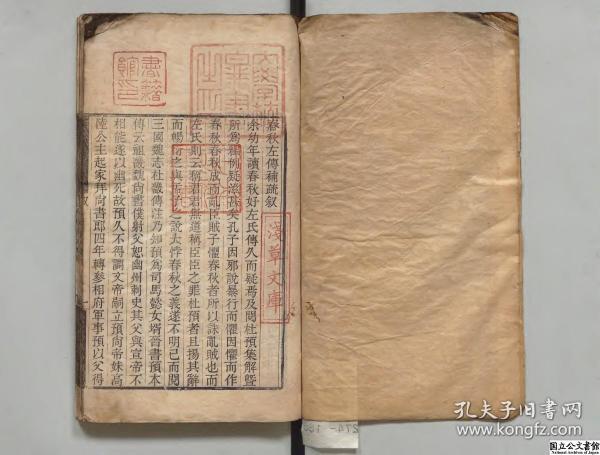 春秋左傳補疏敘
余幼年讀春秋好左氏傳久而疑焉及閱杜預集解暨
所爲釋例疑滋甚矣孔子因邪說暴行而懼因懼而作
春秋春秋成而亂臣賊子懼春秋者所以誅亂賊也而
左氏則云稱君君無道稱臣臣之罪杜預者且揚其辭
而暢衍之與孟子之說大悖春秋之義遂不明已而閱
三國魏志杜畿傳注乃知預爲司馬懿女壻晉書預本
傳云祖畿魏尚書僕射父恕幽州刺史其父與宣帝不
相能遂以幽死故預久不得調文帝嗣立預尚帝妹高
陸公主起家拜尚書郎四年轉參相府軍事預以父得
淺草文庫
書籍館印
孔夫子旧書网
www.kongfz.com
国立公文書館
National Archives of Japan